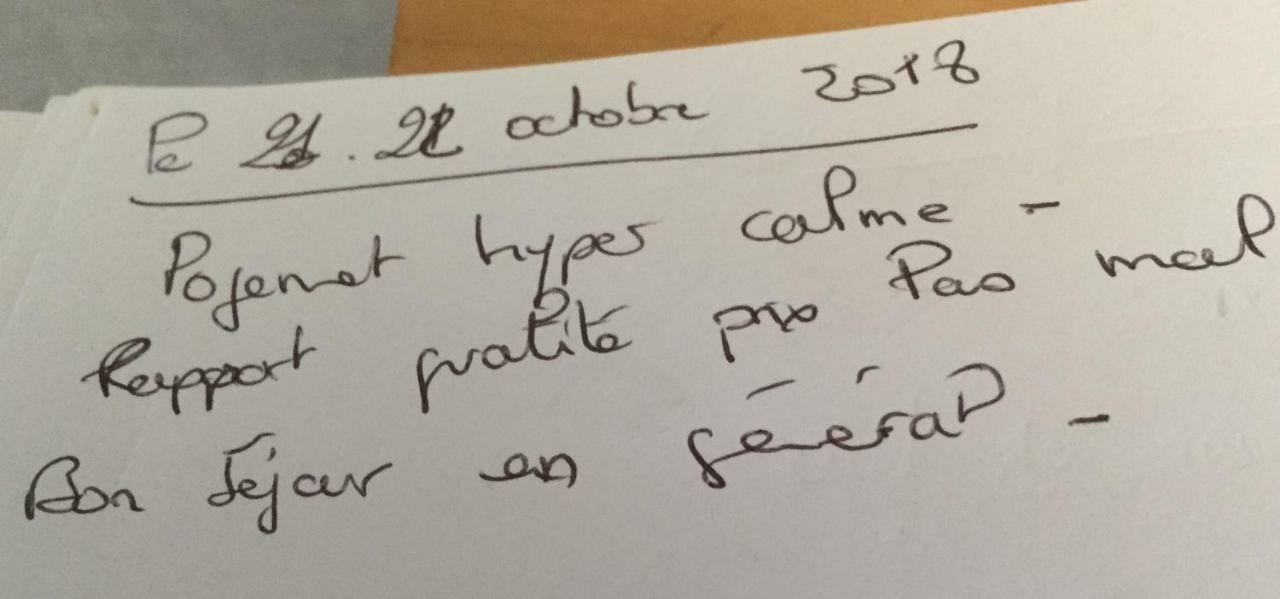 Le 21. 22 octobre 2018
Logement hyper calme -
Rapport qualité prix Pas mal
Bon séjour en général -